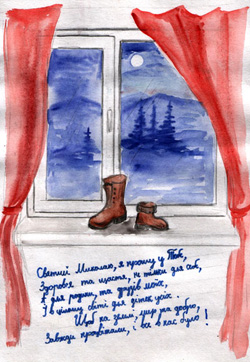 Святий Миколаю, я прошу у Тебе,
Здоров'я та щастя, не тільки для себе,
А для родини, та друзів моїх,
І в цілому світі для діток усіх.
Щоб на землі, мир та добро,
Завжди процвітали, і все в нас було!